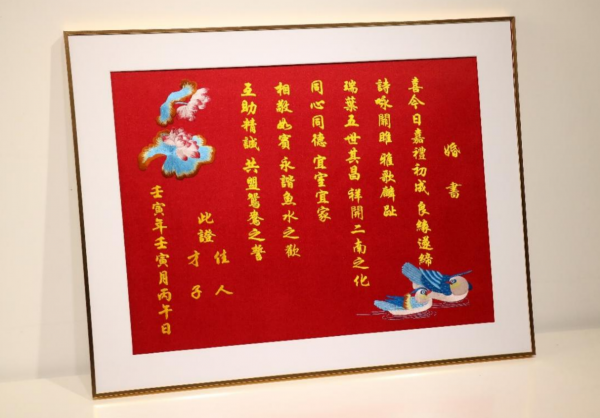 婚書
喜今日嘉禮初成 良緣遂締
詩咏關雎 雅歌麟趾
瑞葉五世其昌 祥開二南之化
同心同德 宜室宜家
相敬如賓 永諧魚水之歡
互助精誠 共盟鴛鴦之誓
此證
佳人
才子
壬寅年壬寅月丙午日